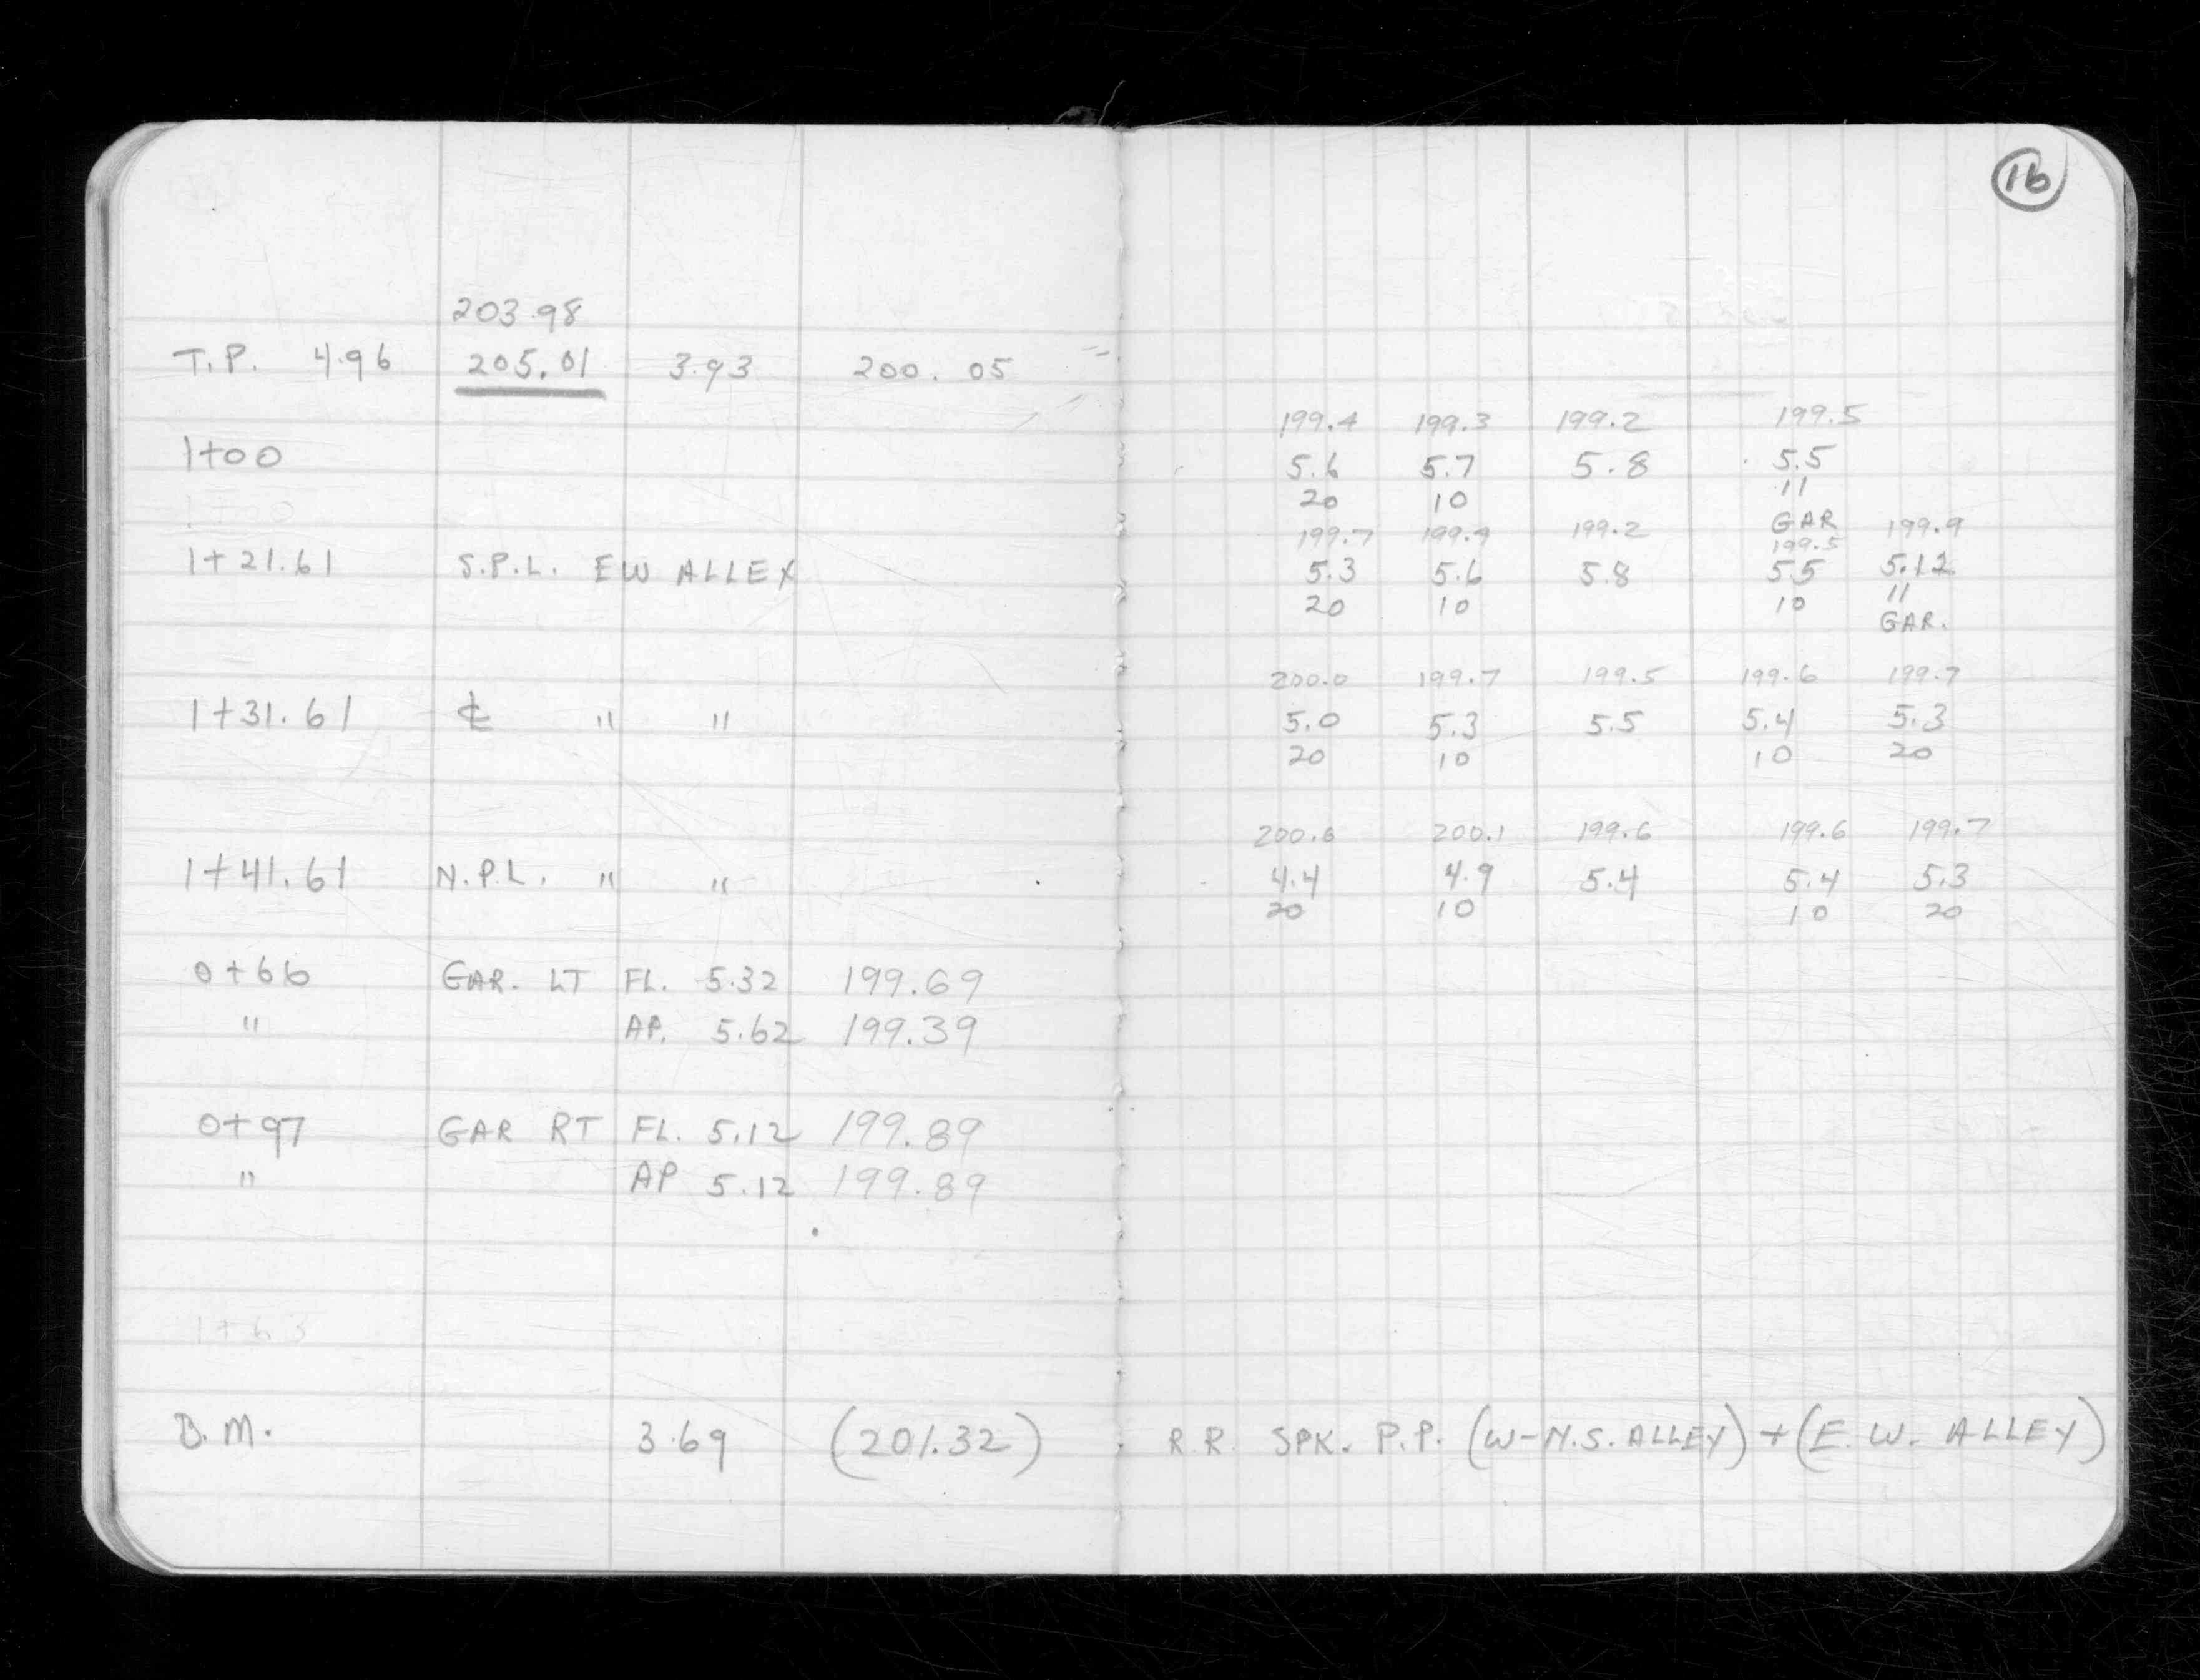 16
203.98
T.P. 4.96 205.01 3.93 200.05
199.4 199.3 199.2 199.5
1+00 5.6 5.7 5.8 5.5
20 10 11
1+00 GAR
199.7 199.4 199.2 199.5 199.9
1+21.61 S.P.L. EW ALLEY 5.3 5.6 5.8 5.5 5.12
20 10 10 11
GAR.
200.0 199.7 199.5 199.6 199.7
1+31.61 ℄ " " 5.0 5.3 5.5 5.4 5.3
20 10 10 20
200.6 200.1 199.6 199.6 199.7
1+41.61 N.P.L. " " 4.4 4.9 5.4 5.4 5.3
20 10 10 20
0+66 GAR. LT FL. 5.32 199.69
" AP. 5.62 199.39
0+97 GAR RT FL. 5.12 199.89
" AP 5.12 199.89
1+63
B.M. 3.69 (201.32) R.R. SPK. P.P. (W-N.S. ALLEY) + (E. W. ALLEY)